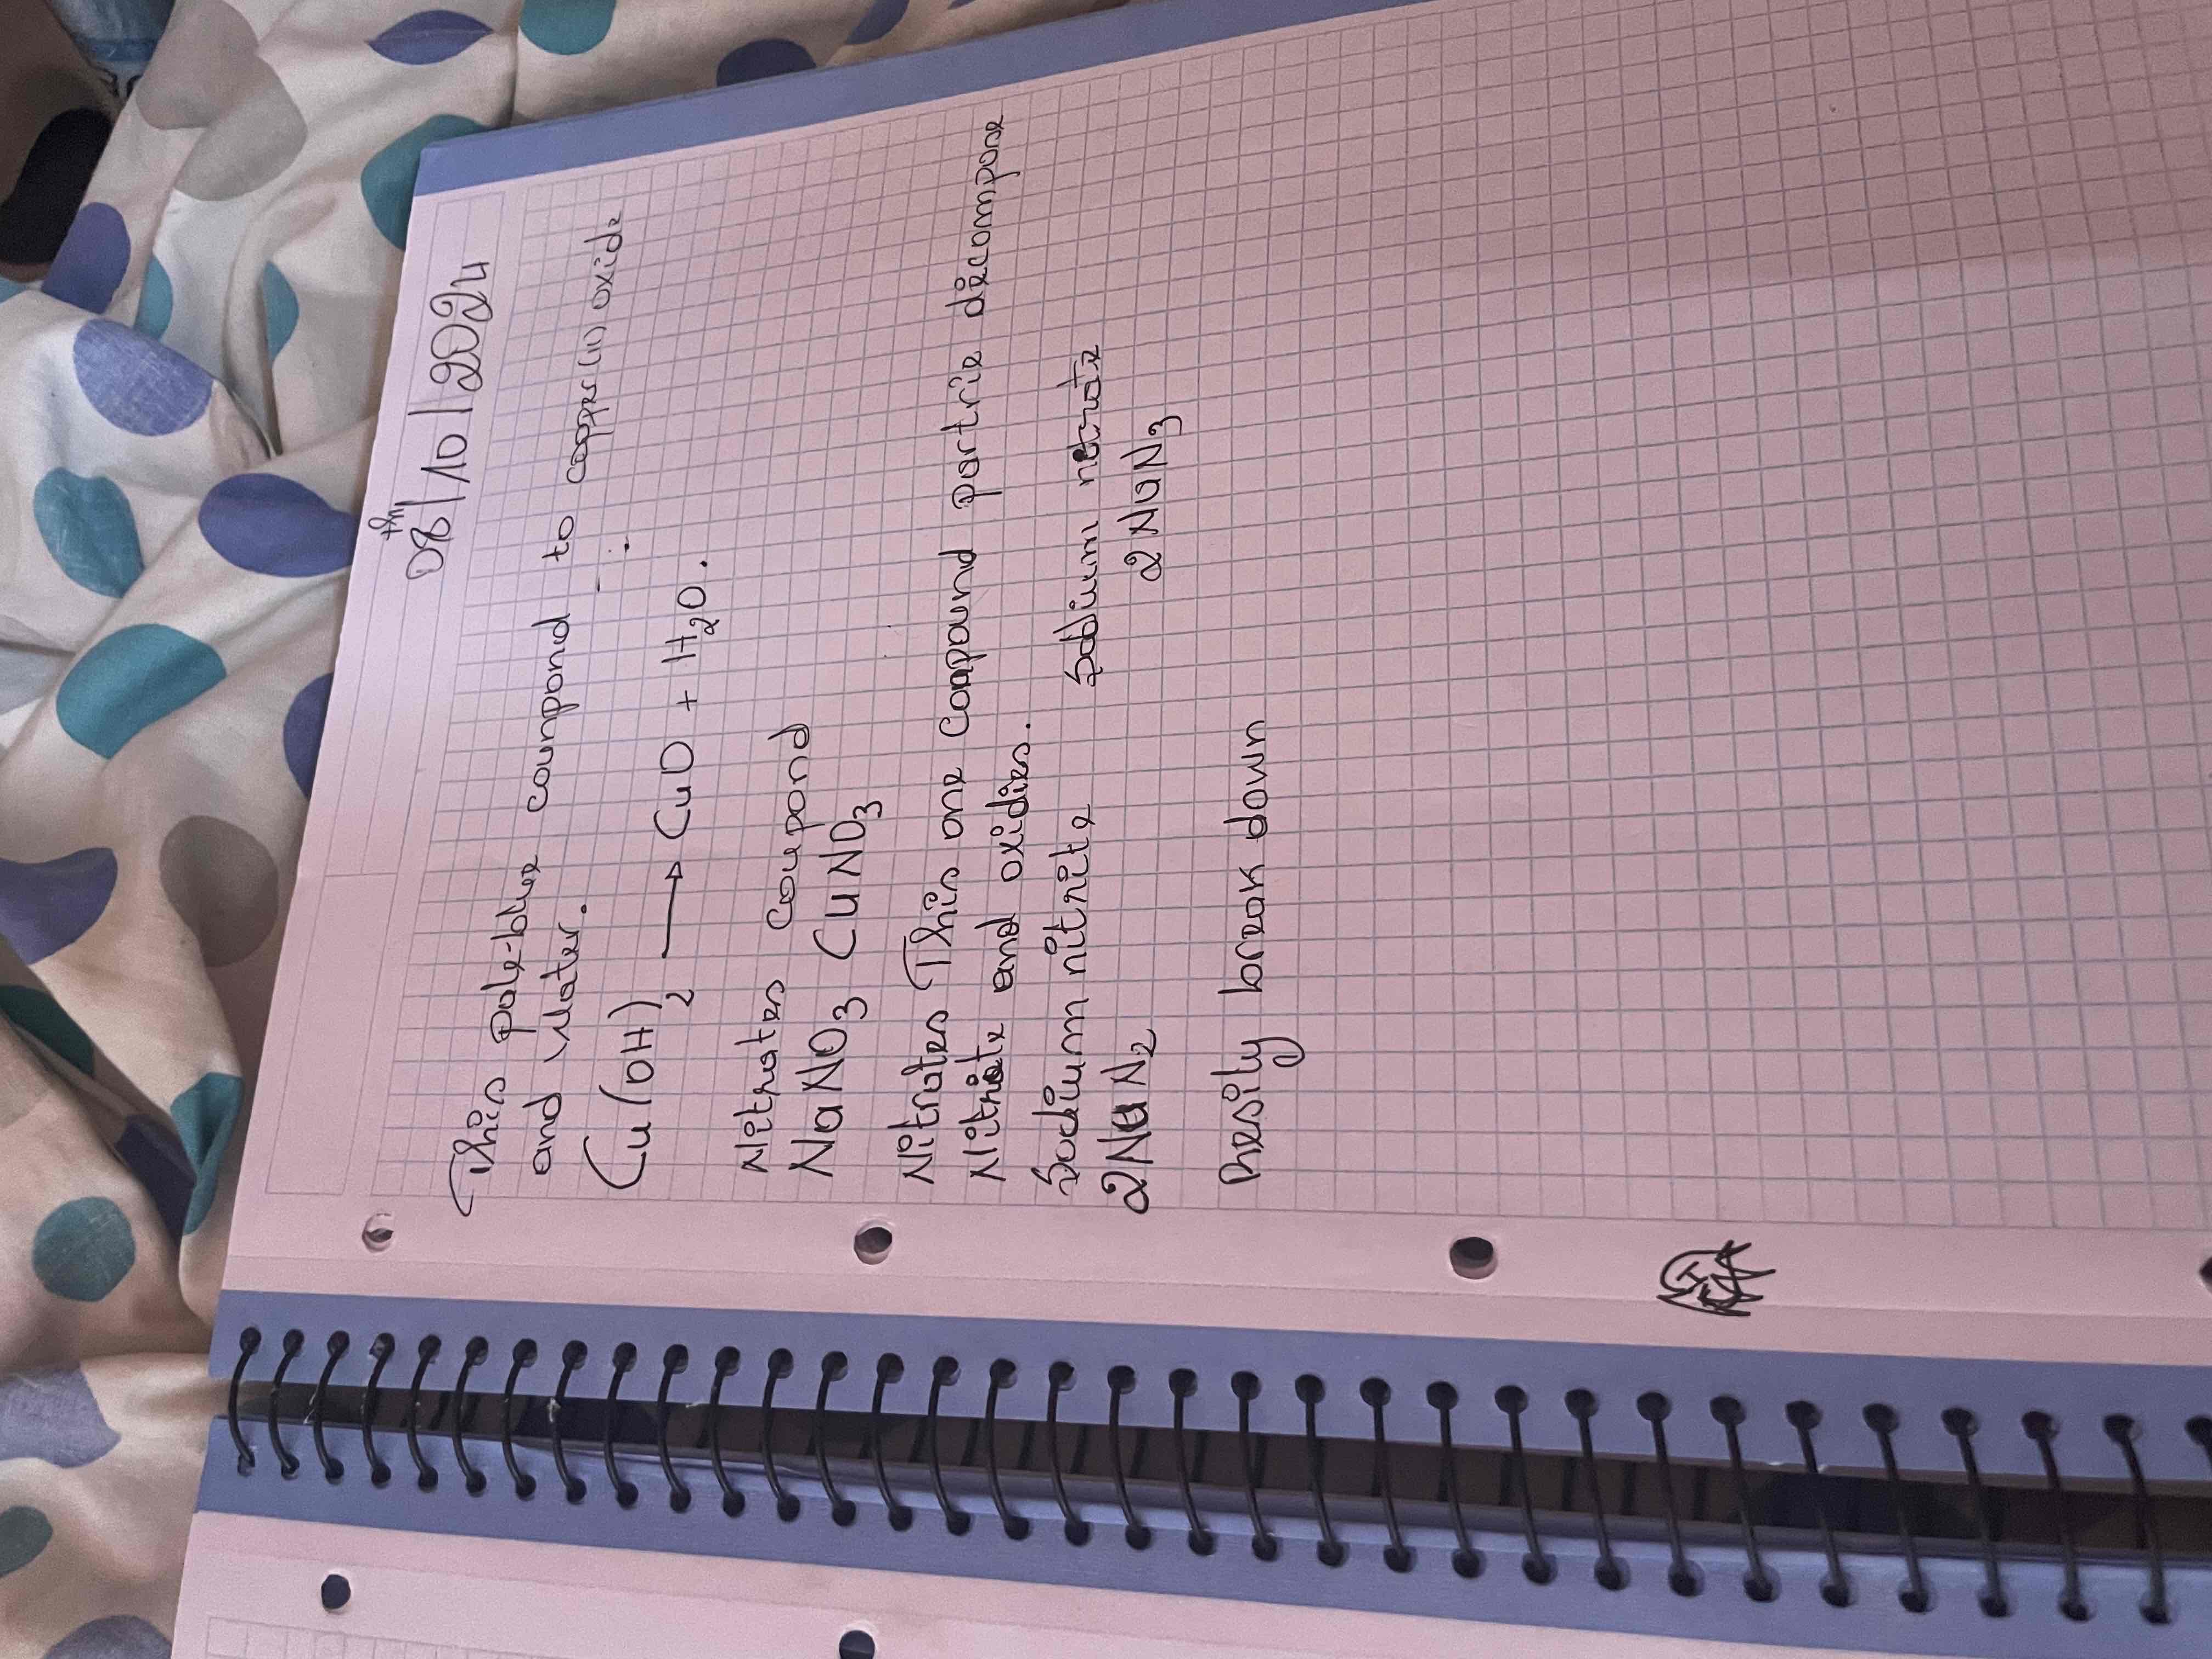 08th/10/2024
This pale-blue counpond to copper(II) oxide
and water.
Cu(OH)2 → CuO + H2O.
Nitrates coupond
NaNO3 CuNO3
Nitrates This one compound partrie décompose
and oxidies.
Sodium nitrite Sodium nitrate
2NaN2 2NaN3
break down